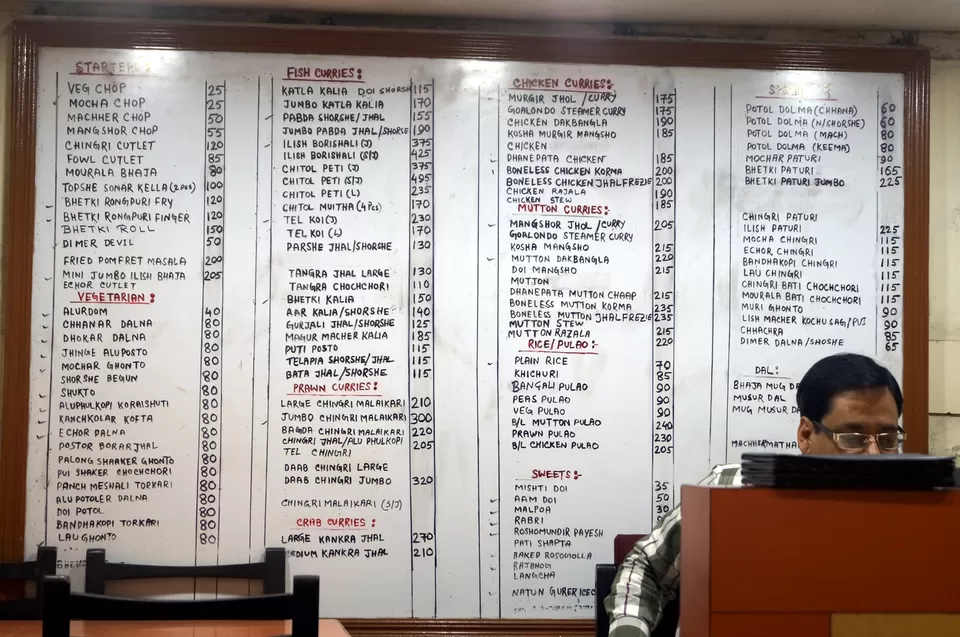 STARTERS:
VEG CHOP 25
MOCHA CHOP 25
MACHHER CHOP 50
MANGSHOR CHOP 55
CHINGRI CUTLET 120
FOWL CUTLET 85
MOURALA BHAJA 80
TOPSHE SONAR KELLA (2 PCS) 100
BHETKI RONGPURI FRY 120
BHETKI RONGPURI FINGER 120
BHETKI ROLL 150
DIMER DEVIL 50
FRIED POMFRET MASALA 200
MINI JUMBO ILISH BHAJA 205
ECHOR CUTLET
VEGETARIAN:
ALURDOM 40
CHHANAR DALNA 80
DHOKAR DALNA 80
JHINGE ALUPOSTO 80
MOCHAR GHONTO 80
SHORSHE BEGUN 80
SHUKTO 80
ALUPHULKOPI KORAISHUTI 80
KANCHKOLAR KOFTA 80
ECHOR DALNA 80
POSTOR BORAR JHAL 80
PALONG SHAAKER GHONTO 80
PUI SHAKER CHOCHCHORI 80
PANCH MESHALI TORKARI 80
ALU POTOLER DALNA 80
DOI POTOL 80
BANDHAKOPI TORKARI 80
LAU GHONTO 80
FISH CURRIES:
KATLA KALIA DOI SHORSH 115
JUMBO KATLA KALIA 170
PABDA SHORSHE/JHAL 155
JUMBO PABDA JHAL/SHORSE 190
ILISH BORISHALI (J) 375
ILISH BORISHALI (S/J) 425
CHITOL PETI (J) 375
CHITOL PETI (S/J) 495
CHITOL PETI (L) 235
CHITOL MUITHA (4 Pcs) 170
TEL KOI (J) 230
TEL KOI (L) 170
PARSHE JHAL/SHORSHE 130
TANGRA JHAL LARGE 130
TANGRA CHOCHCHORI 110
BHETKI KALIA 150
AAR KALIA/SHORSHE 140
GURJALI JHAL/SHORSHE 125
MAGUR MACHER KALIA 185
PUTI POSTO 115
TELAPIA SHORSHE/JHAL 115
BATA JHAL/SHORSHE 115
PRAWN CURRIES:
LARGE CHINGRI MALAIKARI 210
JUMBO CHINGRI MALAIKARI 300
BAGDA CHINGRI MALAIKARI 220
CHINGRI JHAL/ALU PHULKOPI 205
TEL CHINGRI
DAAB CHINGRI LARGE
DAAB CHINGRI JUMBO 320
CHINGRI MALAIKARI (S/J)
CRAB CURRIES:
LARGE KANKRA JHAL 270
MEDIUM KANKRA JHAL 210
CHICKEN CURRIES:
MURGIR JHOL /CURRY 175
GOALONDO STEAMER CURRY 175
CHICKEN DAKBANGLA 190
KOSHA MURGIR MANGSHO 185
CHICKEN
DHANEPATA CHICKEN 185
BONELESS CHICKEN KORMA 200
BONELESS CHICKEN JHALFREZIE 200
CHICKEN RAJALA 190
CHICKEN STEW 185
MUTTON CURRIES:
MANGSHOR JHOL /CURRY 205
GOALONDO STEAMER CURRY
KOSHA MANGSHO 215
MUTTON DAKBANGLA 220
DOI MANGSHO 215
MUTTON
DHANEPATA MUTTON CHAAP 215
BONELESS MUTTON KORMA 235
BONELESS MUTTON JHALFREZIE 235
MUTTON STEW
MUTTON RAZALA 215
RICE/PULAO: 220
PLAIN RICE 70
KHICHURI 85
BANGALI PULAO 90
PEAS PULAO 90
VEG PULAO 90
B/L MUTTON PULAO 240
PRAWN PULAO 230
B/L CHICKEN PULAO 205
SWEETS:
MISHTI DOI 35
AAM DOI 50
MALPOA 30
RABRI
ROSHOMUNDIR PAYESH
PATI SHAPTA
BAKED ROSOGOLLA
RAJBHOG
LANGCHA
NATUN GURER ICEC
POTOL DOLMA (CHHANA) 60
POTOL DOLMA (N/SHORSHE) 60
POTOL DOLMA (MACH) 80
POTOL DOLMA (KEEMA) 80
MOCHAR PATURI 90
BHETKI PATURI 165
BHETKI PATURI JUMBO 225
CHINGRI PATURI
ILISH PATURI 225
MOCHA CHINGRI 115
ECHOR CHINGRI 115
BANDHAKOPI CHINGRI 115
LAU CHINGRI 115
CHINGRI BATI CHOCHCHORI 115
MOURALA BATI CHOCHORI 115
MURI GHONTO 90
LISH MACHER KOCHU SAG/PUI 90
CHHACHRA 85
DIMER DALNA/SHOSHE 65
DAL:
BHAJA MUG DA
MUSUR DAL
MUG MUSUR DA
MACHHERMATHA